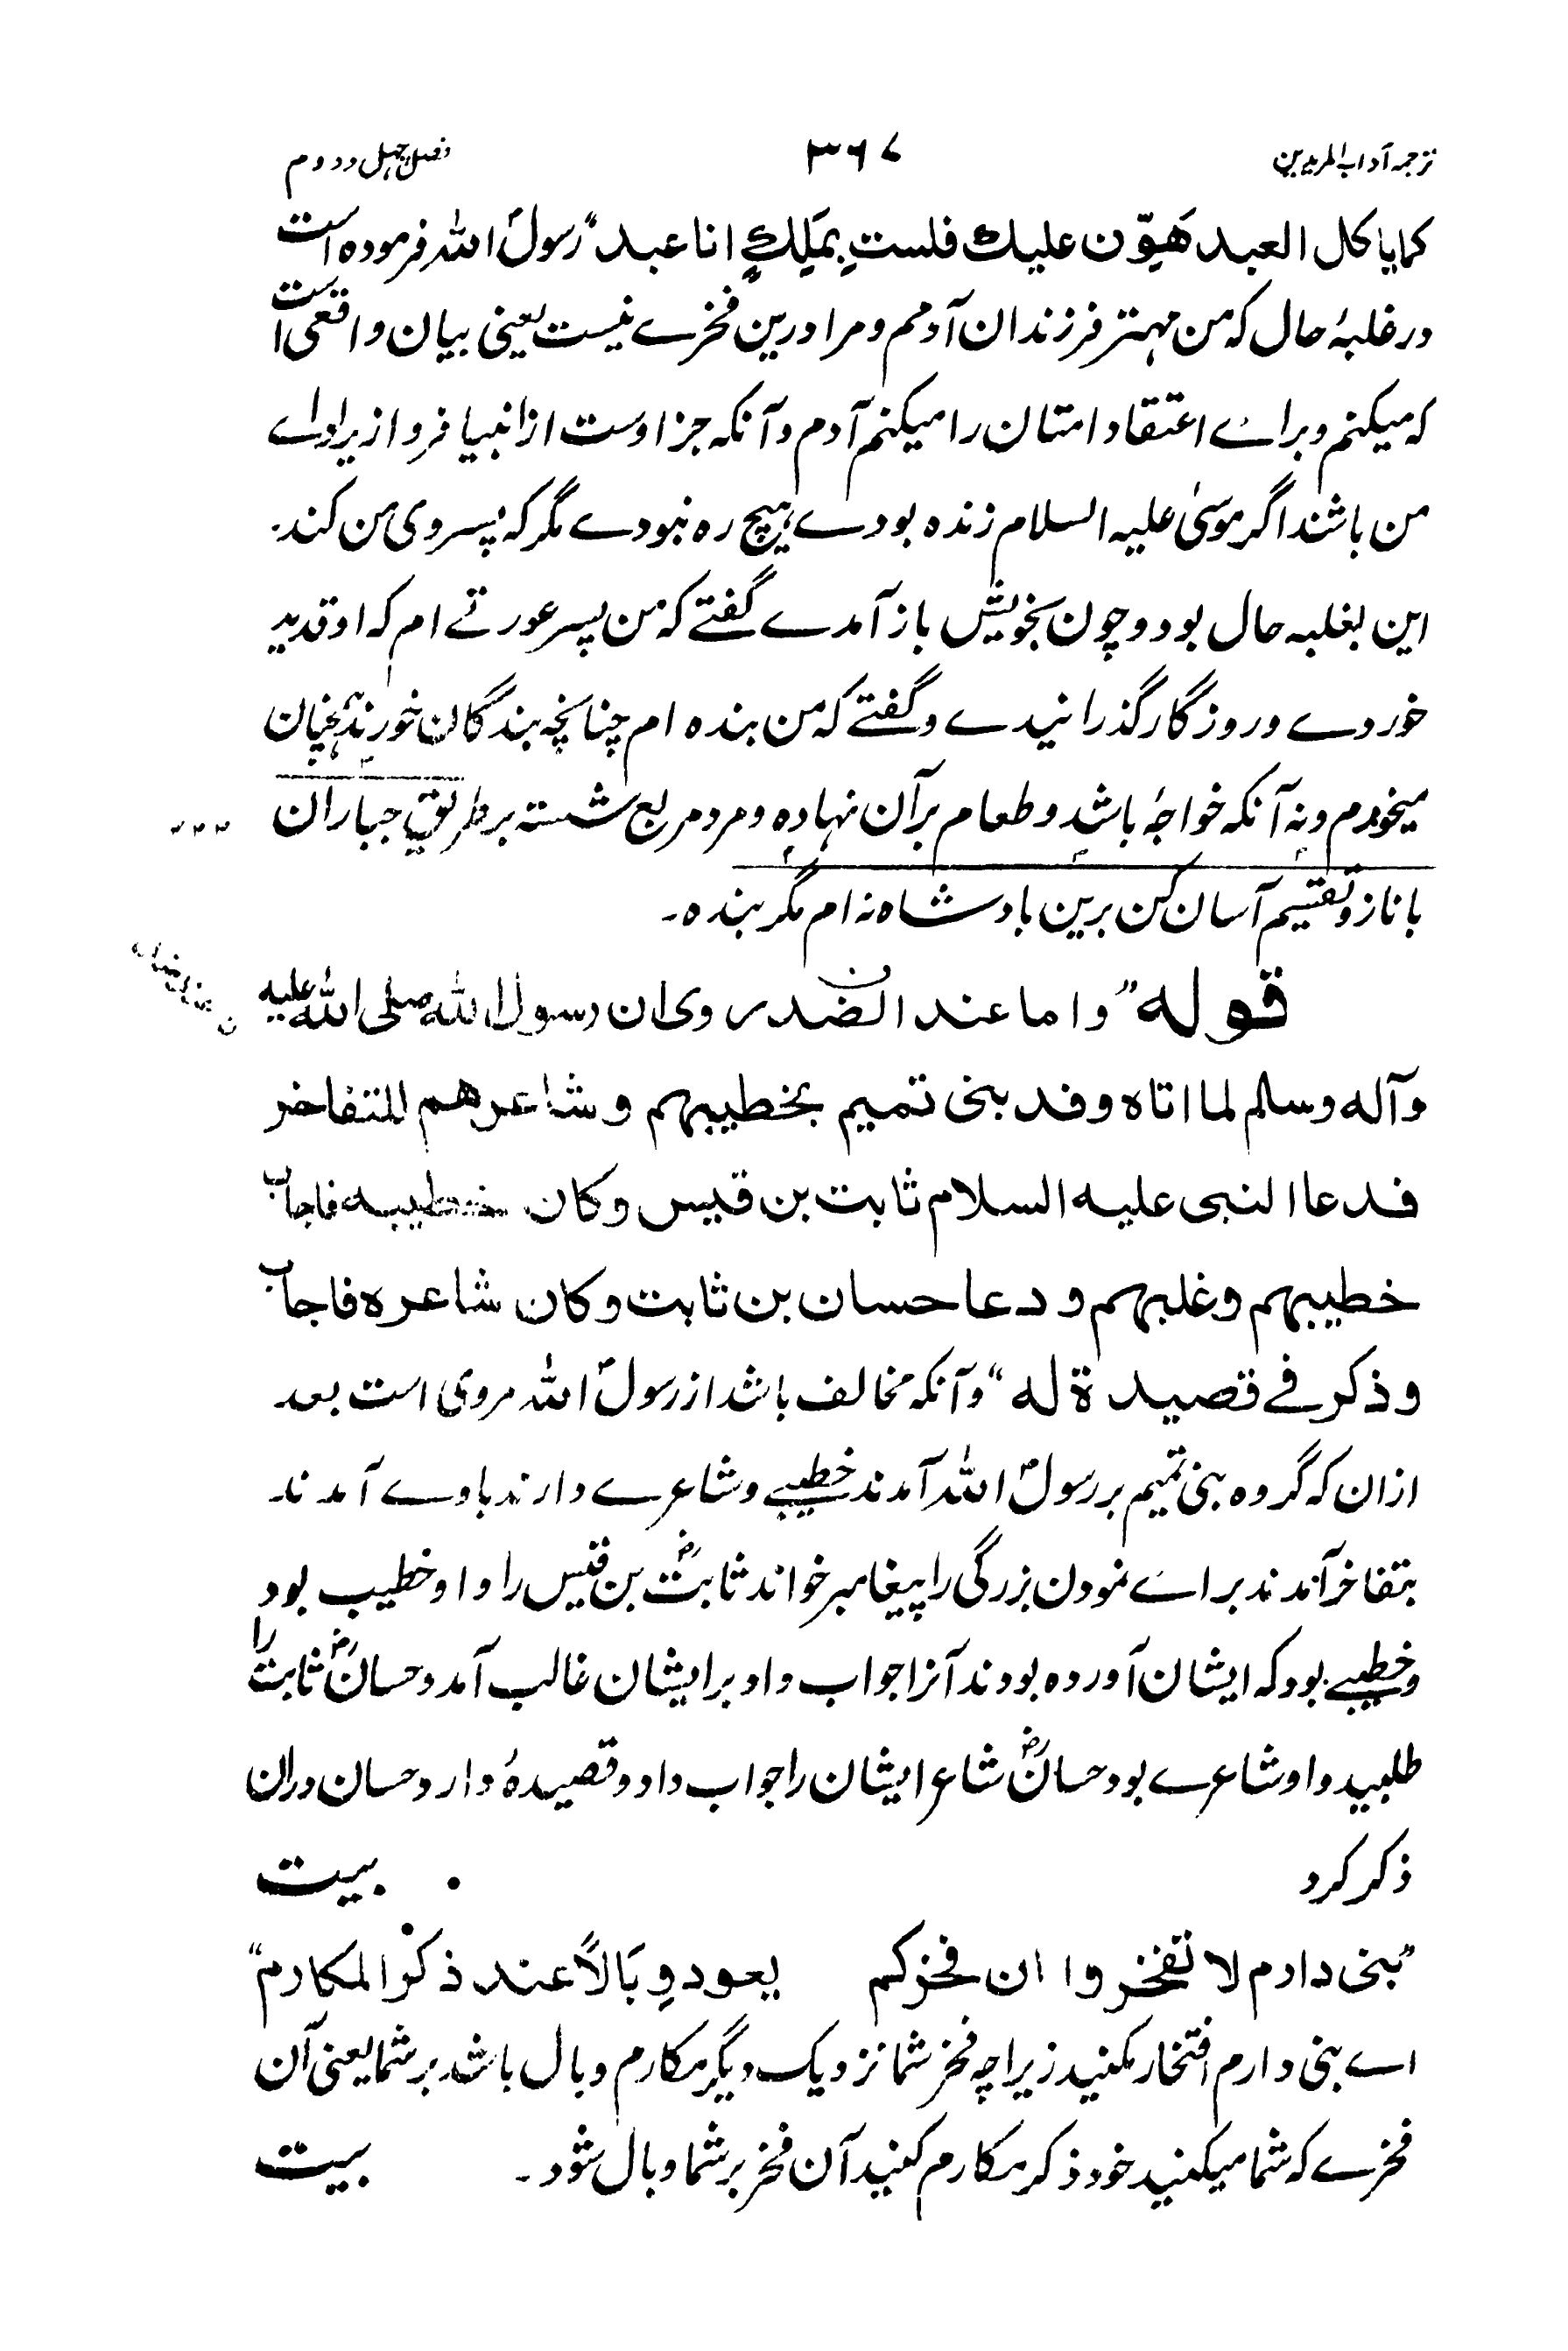 ترجمہ آداب المریدین ۳۶۷ فصل چہل و دوم
کما یاکل العبد هَوِّن علیك فلستِ بمَلِكٍ انا عبد" رسولؐ اللہ فرمودہ است
در غلبۂ حال کہ من مہتر فرزندان آدمم و مرا درین فخرے نیست یعنی بیان واقعی است
کہ میکنم و براے اعتقاد امتان را میکنم آدم و آنکہ جز اوست از انبیا فرو از یر لواے
من باشند اگر موسیٰ علیہ السلام زندہ بودے ہیچ رہ نبودے مگر کہ پسروی من کند۔
این بغلبہ حال بود و چون بخویش باز آمدے گفتے کہ من پسر عورتے ام کہ او قدید
خوردے و روزگار گذرانیدے و گفتے کہ من بندہ ام چنانچہ بندگان خورند ہمچنان
میخورم و نہ آنکہ خواجۂ باشد و طعام بر آن نہادہ و مردمربع نشستہ بر طریق جباران
با ناز و تقسیم آسان کن برین بادشاہ نہ ام مگر بندہ۔
قوله" واما عند الضد روی ان رسول اللہ صلی اللہ علیه
وآله وسلم لما اتاہ وفد بنی تمیم بخطیبهم وشاعرهم للتفاخر
فدعا النبی علیه السلام ثابت بن قیس وکان خطیبه فاجاب
خطیبهم وغلبهم ودعا حسان بن ثابت وکان شاعرہ فاجاب
وذکر فے قصیدة له" و آنکہ مخالف باشد از رسولؐ اللہ مروی است بعد
ازان کہ گروہ بنی تمیم بر رسولؐ اللہ آمدند خطیبے و شاعرے دارند باوے آمدند۔
بتفاخر آمدند براے نمودن بزرگی را پیغامبر خواند ثابتؓ بن قیس را و او خطیب بود
و خطیبے بود کہ ایشان آوردہ بودند آنرا جواب داد بر ایشان غالب آمد و حسانؓ ثابت را
طلبید و او شاعرے بود حسانؓ شاعر ایشان را جواب داد و قصیدۂ دارد حسان دران
ذکر کرد بیت
"بنی دارم لا تفخروا ان فخرکم یعود وبَالاً عند ذکر المکارم"
اے بنی دارم افتخار مکنید زیراچہ فخر شما نزدیک دیگر مکارم وبال باشد بر شما یعنی آن
فخرے کہ شما میکنید خود ذکر مکارم کنید آن فخر بر شما وبال شود۔ بیت